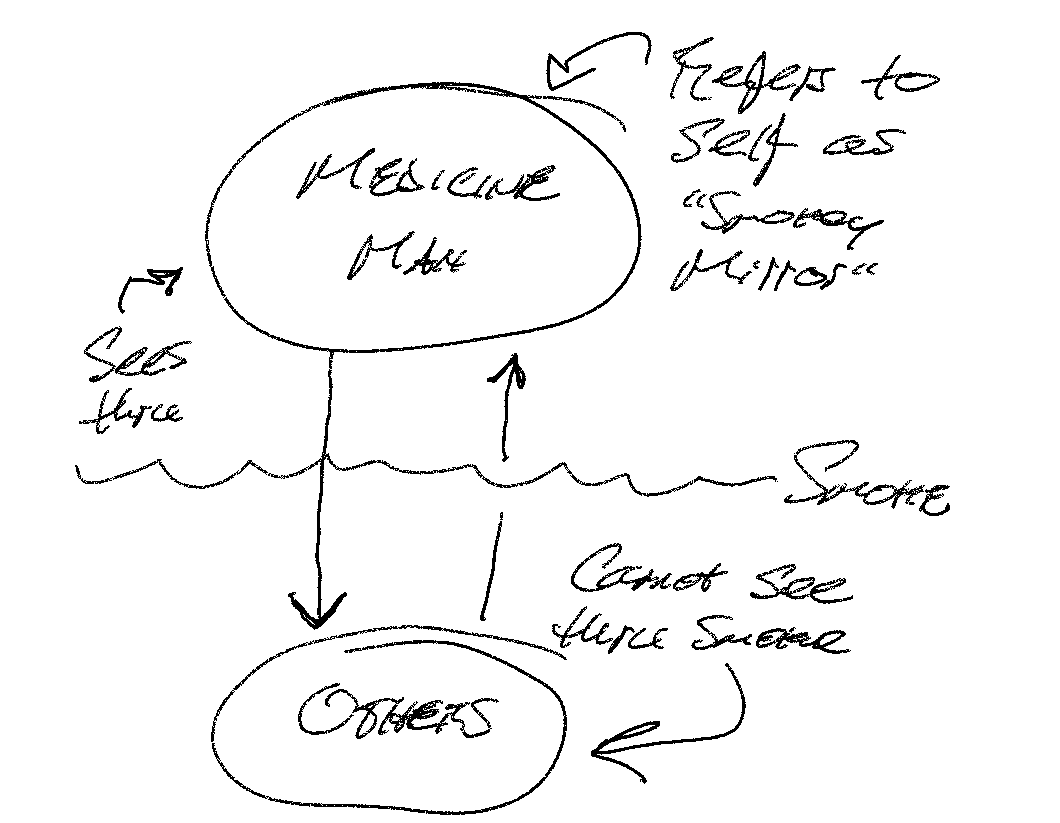 Refers to
Self as
"Smokey
Mirror"
MEDICINE
MAN
Sees
thru
SMOKE
Cannot See
thru Smoke
OTHERS